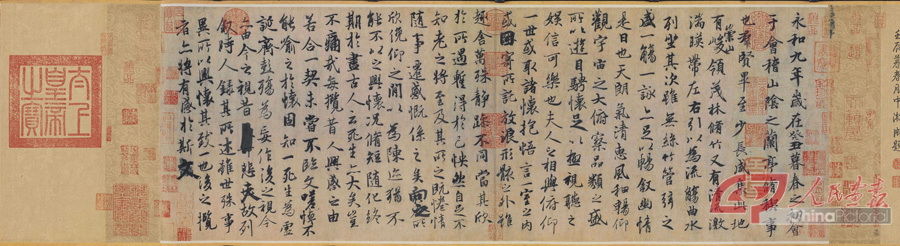 永和九年歲在癸丑暮春之初會
于會稽山陰之蘭亭脩稧事
也群賢畢至少長咸集此地
有崇山峻領茂林脩竹又有清流激
湍暎帶左右引以為流觴曲水
列坐其次雖無絲竹管弦之
盛一觴一詠亦足以暢敘幽情
是日也天朗氣清惠風和暢仰
觀宇宙之大俯察品類之盛
所以遊目騁懷足以極視聽之
娛信可樂也夫人之相與俯仰
一世或取諸懷抱悟言一室之內
或因寄所託放浪形骸之外雖
趣舍萬殊靜躁不同當其欣
於所遇蹔得於己怏然自足不
知老之將至及其所之既惓情
隨事遷感慨係之矣向之所
欣俛仰之閒以為陳迹猶不
能不以之興懷況脩短隨化終
期於盡古人云死生亦大矣豈
不痛哉每攬昔人興感之由
若合一契未嘗不臨文嗟悼不
能喻之於懷固知一死生為虛
誕齊彭殤為妄作後之視今
亦由今之視昔悲夫故列
敘時人錄其所述雖世殊事
異所以興懷其致一也後之攬
者亦將有感於斯文
太上皇帝之寶
人民画报
ChinaPictorial